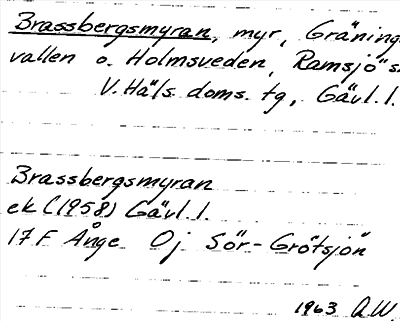 Brassbergsmyran, myr, Gränings
vallen o. Holmsveden, Ramsjö s
V. Häls. doms. tg, Gävl. l.
Brassbergsmyran
ek (1958) Gävl. l.
17 F Ånge Oj Sör-Grötsjön
1963 A.W.